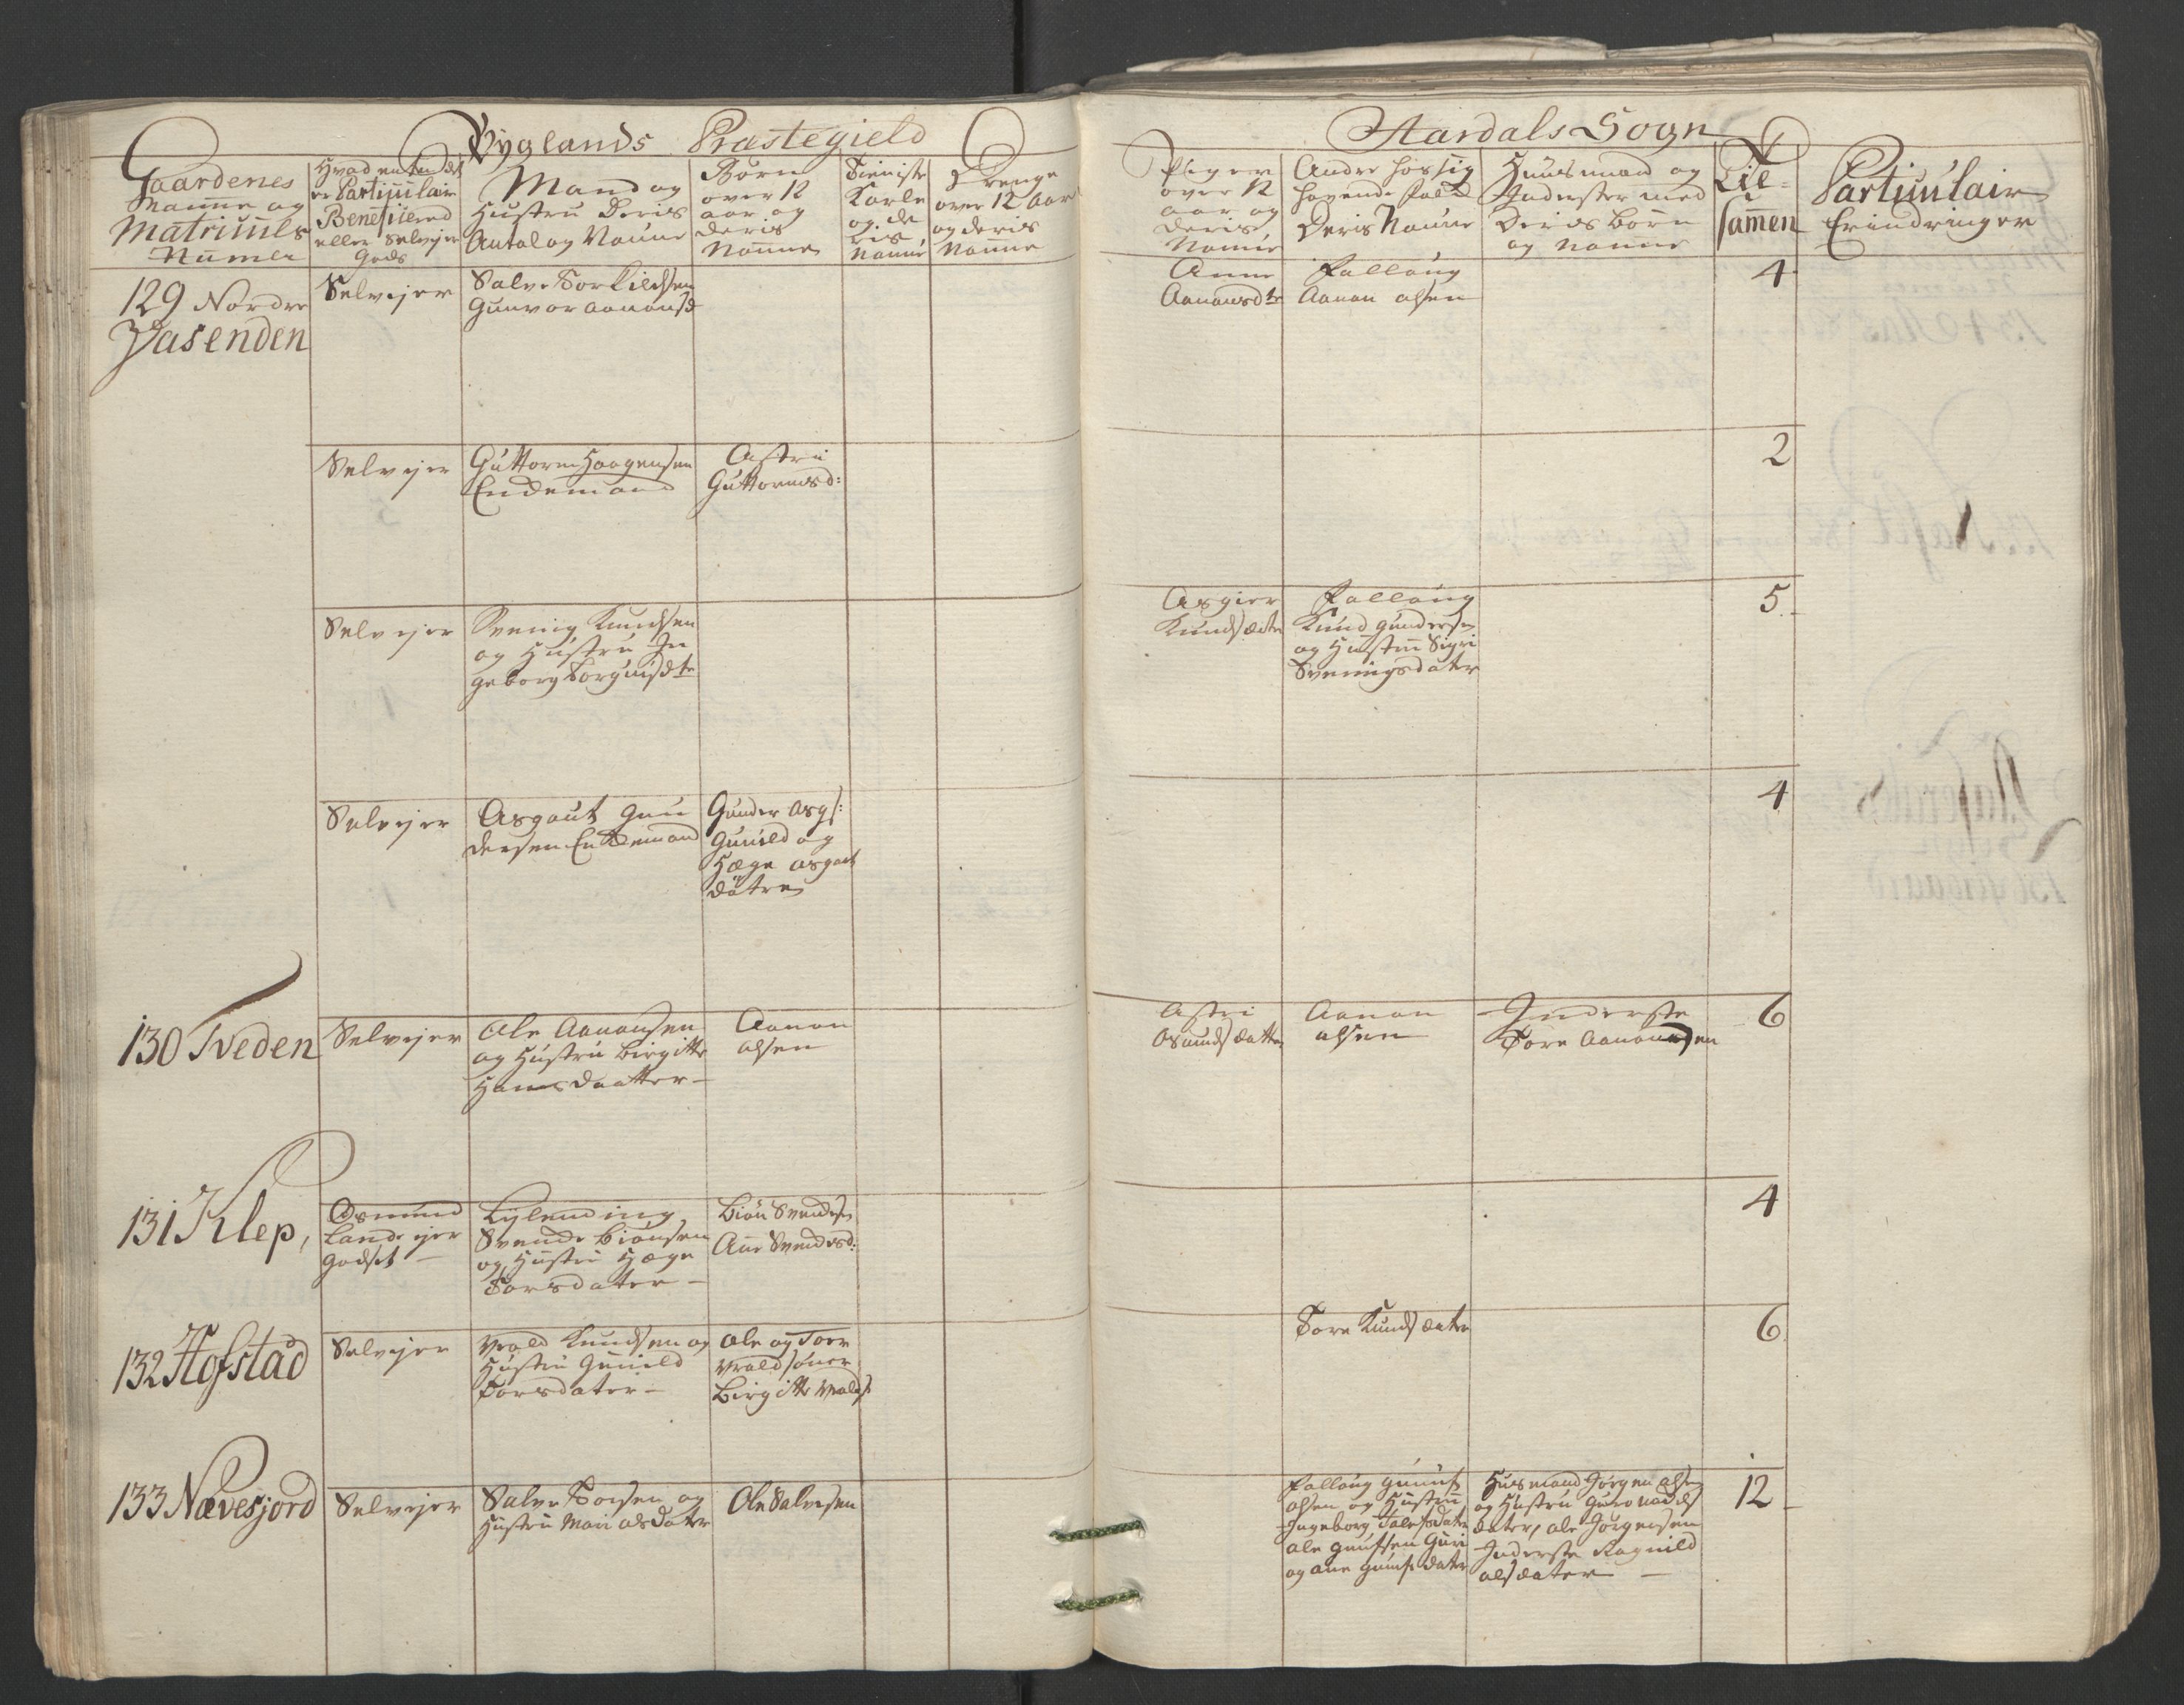 Byglands Præstegield
Aardals Sogn
Gaardenes
Nanne og
Matriculs
Numer
Hvad
er Particulair
Beneficered
eller Selvejer
Gods
Mand og
Hustru Deris
Antal og Nanne
Børn
over 12
aar og
deris
Nanne
Tieniste
Karle
og de
ris
Nanne
Drenge
over 12 aar
og deris
Nanne
Piger
over 12
aar og
deris
Nanne
Andre hos sig
havende folk
Deris Nanne
Huusmænd og
Inderster med
Deris børn
og Nanne
Til=
samen
Particulair
Erindringer
129 Nordre
Vasenden
Selvejer
Salve Torkildsen
Gunvor Aanonsd
Anne
Aanonsdtr
Follaug
Aanon olsen
4
Selvejer
Guttorm Haagensen
Enckemand
Astri
Guttormsd:
2
Selvejer
Svenig Knudsen
og Hustru In
geborg Torgrisdtr
Asgier
Knudsdater
Follaug
Knud gundersen
og Hustru Sigri
Svenigsdater
5
Selvejer
Asgaut Gun
dersen Enckemand
Gunder Asgs:
Gunild og
Hæge asgaut
døtre
4
130 Tveden
Selvejer
Ole Aanonsen
og Hustru Birgitte
Hansdaatter
Aanon
olsen
Astri
Osmundsdatter
Aanon
olsen
Inderste
Tore Aanonsen
6
131 Klep,
Osmund
Landejer
godset
Lejlending
Svende Biønsen
og Hustru Hæge
Torsdater
Biøn Svendsen
Ane Svendsd:
4
132 Hofstad
Selvejer
Vrold Knudsen og
Hustru Gunild
Torsdater
Ole og Tore
Vroldsønner
Birgitte Vrolds
Tore Knudsdater
6
133 Nævesjord
Selvejer
Salve Torsen og
Hustru Mari olsdater
Ole Salvesen
Follaug Gunuf
olsen og Hustru
Ingeborg Talefsdater
ole gunufsen Guri
og ane gunufsdater
Husmand Jørgen olsen
og Hustru Guro
dater, ole Jørgensen
Inderste Ragnild
olsdater
12